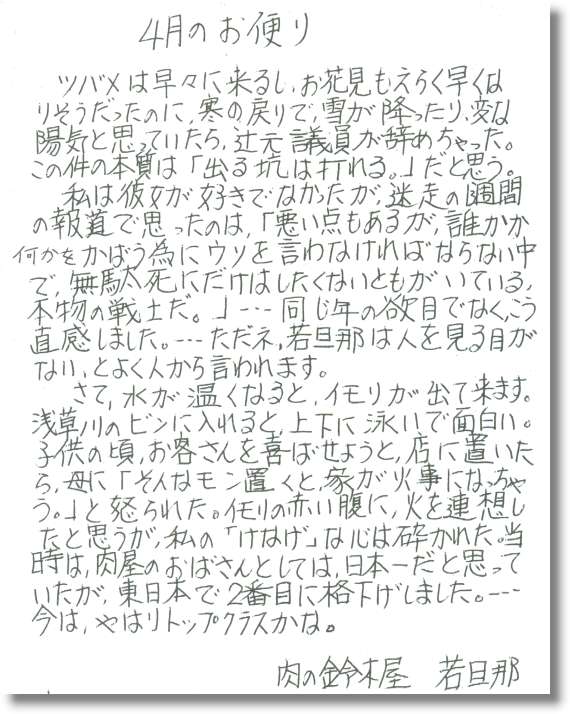 4月のお便り
ツバメは早々に来るし、お花見もえらく早くな
りそうだったのに、寒の戻りで、雪が降ったり、変な
陽気と思っていたら、辻元議員が辞めちゃった。
この件の本質は「出る杭は打れる。」だと思う。
私は彼女が好きでなかったが、迷走の1週間
の報道で思ったのは、「悪い点もあるが、誰かが
何かをかばう為にウソを言わなければならない中
で、無駄死にだけはしたくないともがいている、
本物の戦士だ。」---同じ年の欲目でなく、こう
直感しました。---ただネ、若旦那は人を見る目が
ない、とよく人から言われます。
さて、水が温くなると、イモリが出て来ます。
浅草ノリのビンに入れると、上下に泳いで面白い。
子供の頃、お客さんを喜ばせようと、店に置いた
ら、母に「そんなモン置くと、家が火事になっちゃ
う。」と怒られた。イモリの赤い腹に、火を連想し
たと思うが、私の「けなげ」な心は砕かれた。当
時は、肉屋のおばさんとしては、日本一だと思って
いたが、東日本で2番目に格下げしました。---
今は、やはりトップクラスかな。
肉の鈴木屋 若旦那